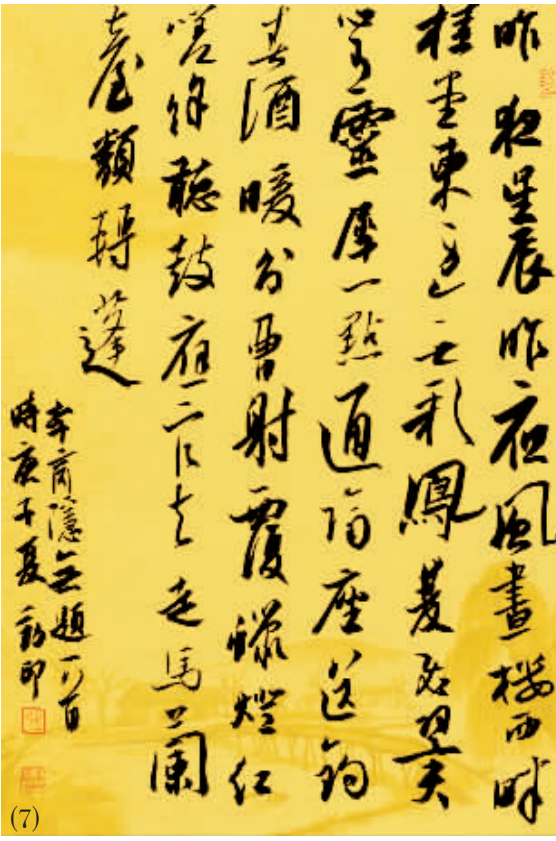 昨夜星辰昨夜風畫樓西畔
桂堂東身無彩鳳雙飛翼
心有靈犀一點通隔座送鉤
春酒暖分曹射覆蠟燈紅
嗟余聽鼓應官去走馬蘭
臺類轉蓬
李商隱無題一首
時庚子夏印
(7)